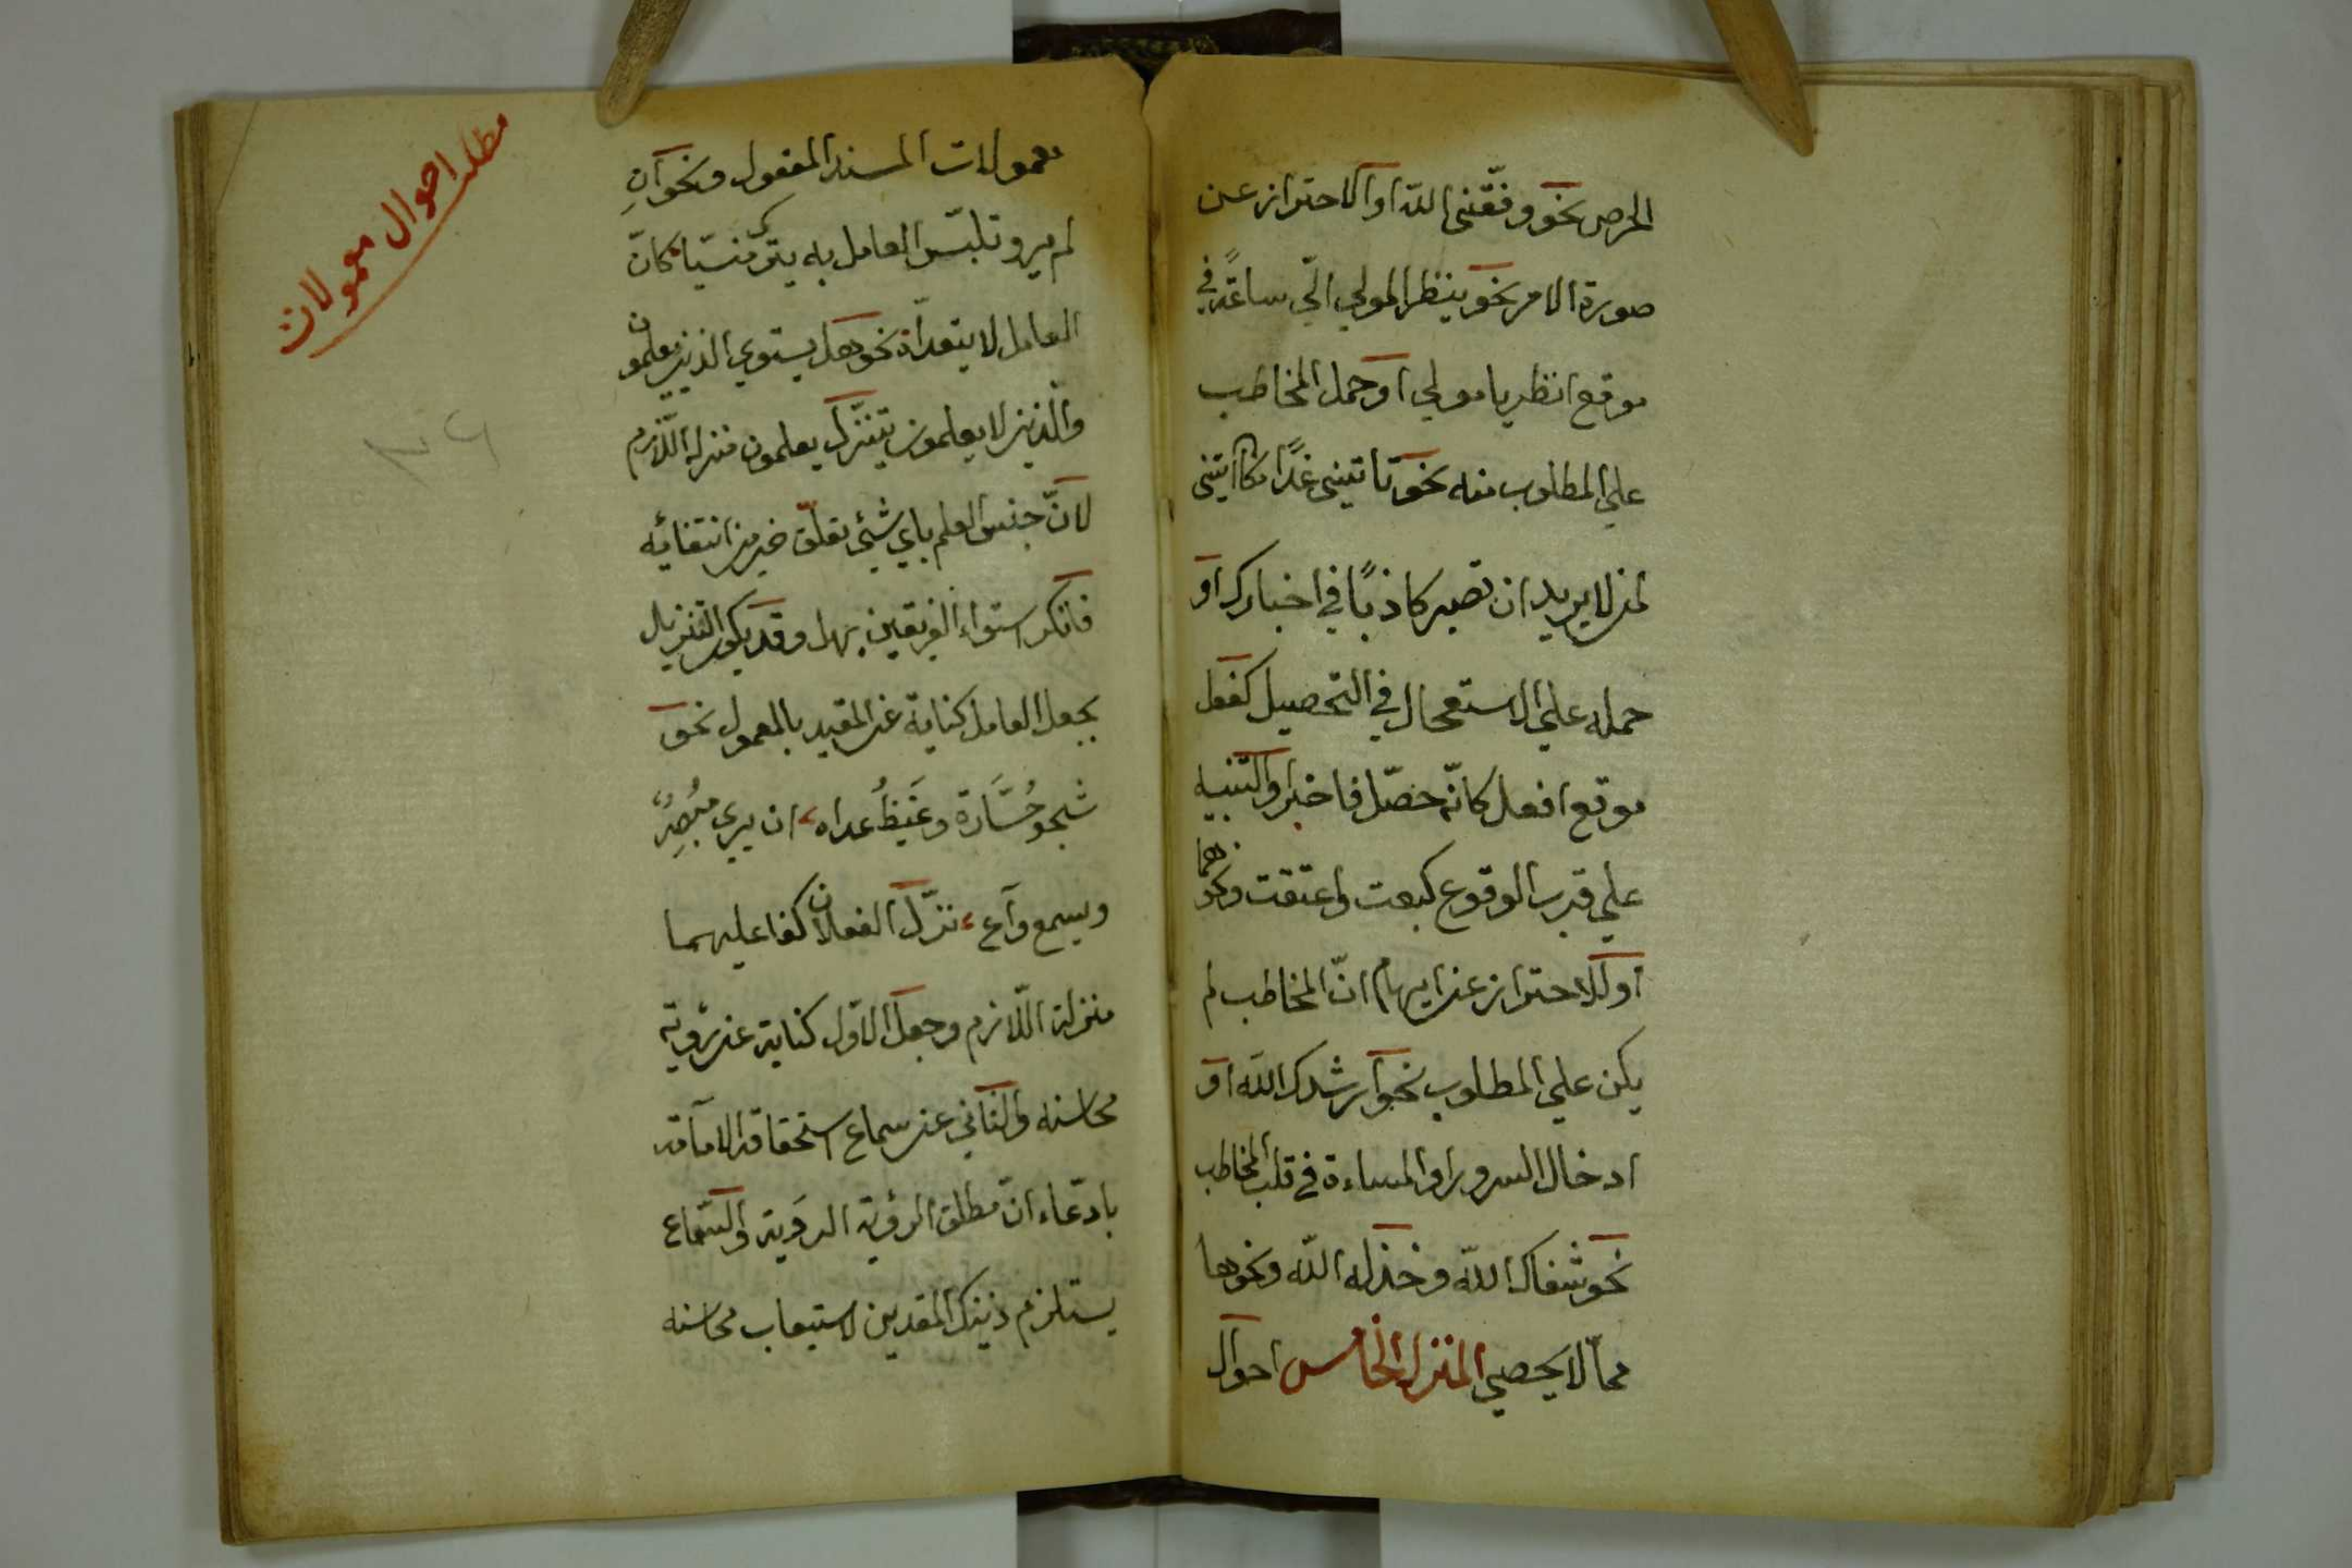 الحرص نحو وفّقنى اللّه او الاحتراز عن
صورة الامر نحو ينظر المولي الّى ساعةً في
موقع انظر يا مولي او حمل المخاطب
علي المطلوب منه نحو تاتينى غدًا مكان ايتنى
لمن لا يريد ان تصير كاذبًا في اخبارك او
حمله علي الاستعجال في التحصيل كفعل
موقع افعل كانّه حصّل فاخبر او التنبيه
علي قرب الوقوع كبعت واعتقت ونحوهما
او للاحتراز عن ايهام انّ المخاطب لم
يكن علي المطلوب نحو ارشدك اللّه او
ادخال السرور او المساءة في قلب المخاطب
نحو شفاك اللّه وخذله اللّه ونحوها
ممّا لا يحصي المنزل الخامس احوال
معمولات المسند المفعول ونحوه ان
لم يرو تلبّس العامل به يترك منسيّا كانّ
العامل لا يتعداه نحو هل يستوي الذين يعلمون
والّذين لا يعلمون يتنزّل يعلمون منزلة اللّازم
لانّ جنس العلم باي شئ تعلّق خير من انتفائه
فانكر استواء الفريقين بهل وقد يكون التنزيل
بجعل العامل كناية عن المقيد بالمعمول نحو
شجو حُسَّاده وغيظُ عداه ان يرى مُبْصِرٌ
ويسمع واع نزّل الفعلان كفا عليهما
منزلة اللّازم وجعل الاوّل كناية عن رؤية
محاسنه والثاني عن سماع استحقاقه الامامة
بادّعاء انّ مطلق الرؤية الروية والسّماع
يستلزم ذينك المقدين لاستيعاب محاسنه
مطلب احوال معمولات